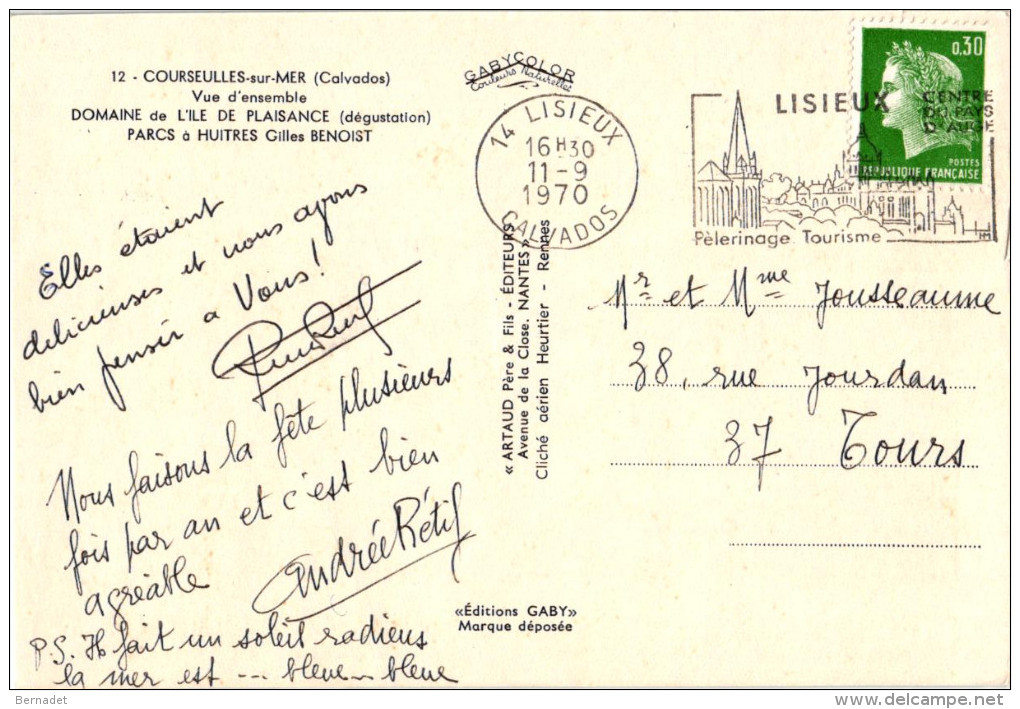 12 - COURSEULLES-sur-MER (Calvados)
Vue d'ensemble
DOMAINE de L'ILE DE PLAISANCE (dégustation)
PARCS à HUITRES Gilles BENOIST
GABYCOLOR
Couleurs Naturelles
14 LISIEUX
16H30
11-9
1970
CALVADOS
LISIEUX
CENTRE
DU PAYS
D'AUGE
Pèlerinage Tourisme
0,30
POSTES
REPUBLIQUE FRANÇAISE
Elles étaient
delicieuses et nous avons
bien pensér a Vous!
Nous faisons la fête plusieurs
fois par an et c'est bien
agréable
Andrée Rétif
P.S. Il fait un soleil radieus
la mer est --- bleue - bleue
« ARTAUD Père & Fils - ÉDITEURS
Avenue de la Close. NANTES »
Cliché aérien Heurtier - Rennes
«Éditions GABY»
Marque déposée
Mr et Mme Jousseaume
38, rue Jourdan
37 Tours
Bernadet
www.delcampe.net